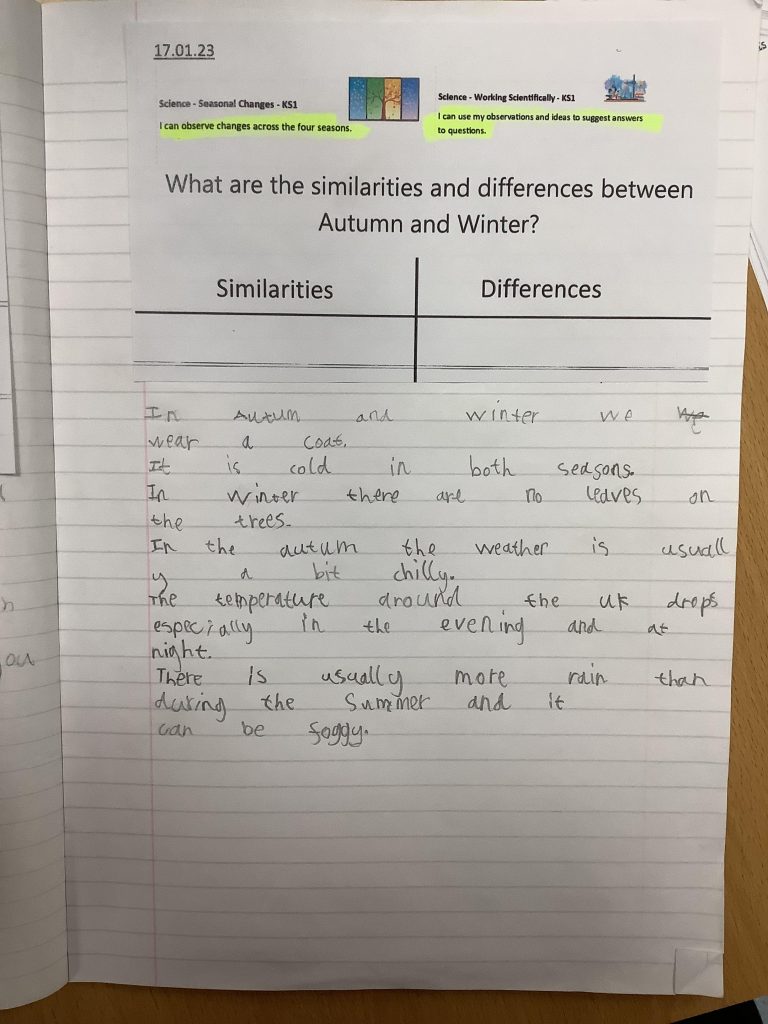 17.01.23
Science - Seasonal Changes - KS1
I can observe changes across the four seasons.
Science - Working Scientifically - KS1
I can use my observations and ideas to suggest answers
to questions.
What are the similarities and differences between
Autumn and Winter?
Similarities
Differences
In Autum and winter we We
wear a coat.
It is cold in both seasons.
In winter there are no leaves on
the trees.
In the autum the weather is usuall
y a bit chilly.
The temperature around the uk drops
especially in the evening and at
night.
There is usually more rain than
during the summer and it
can be foggy.
ou